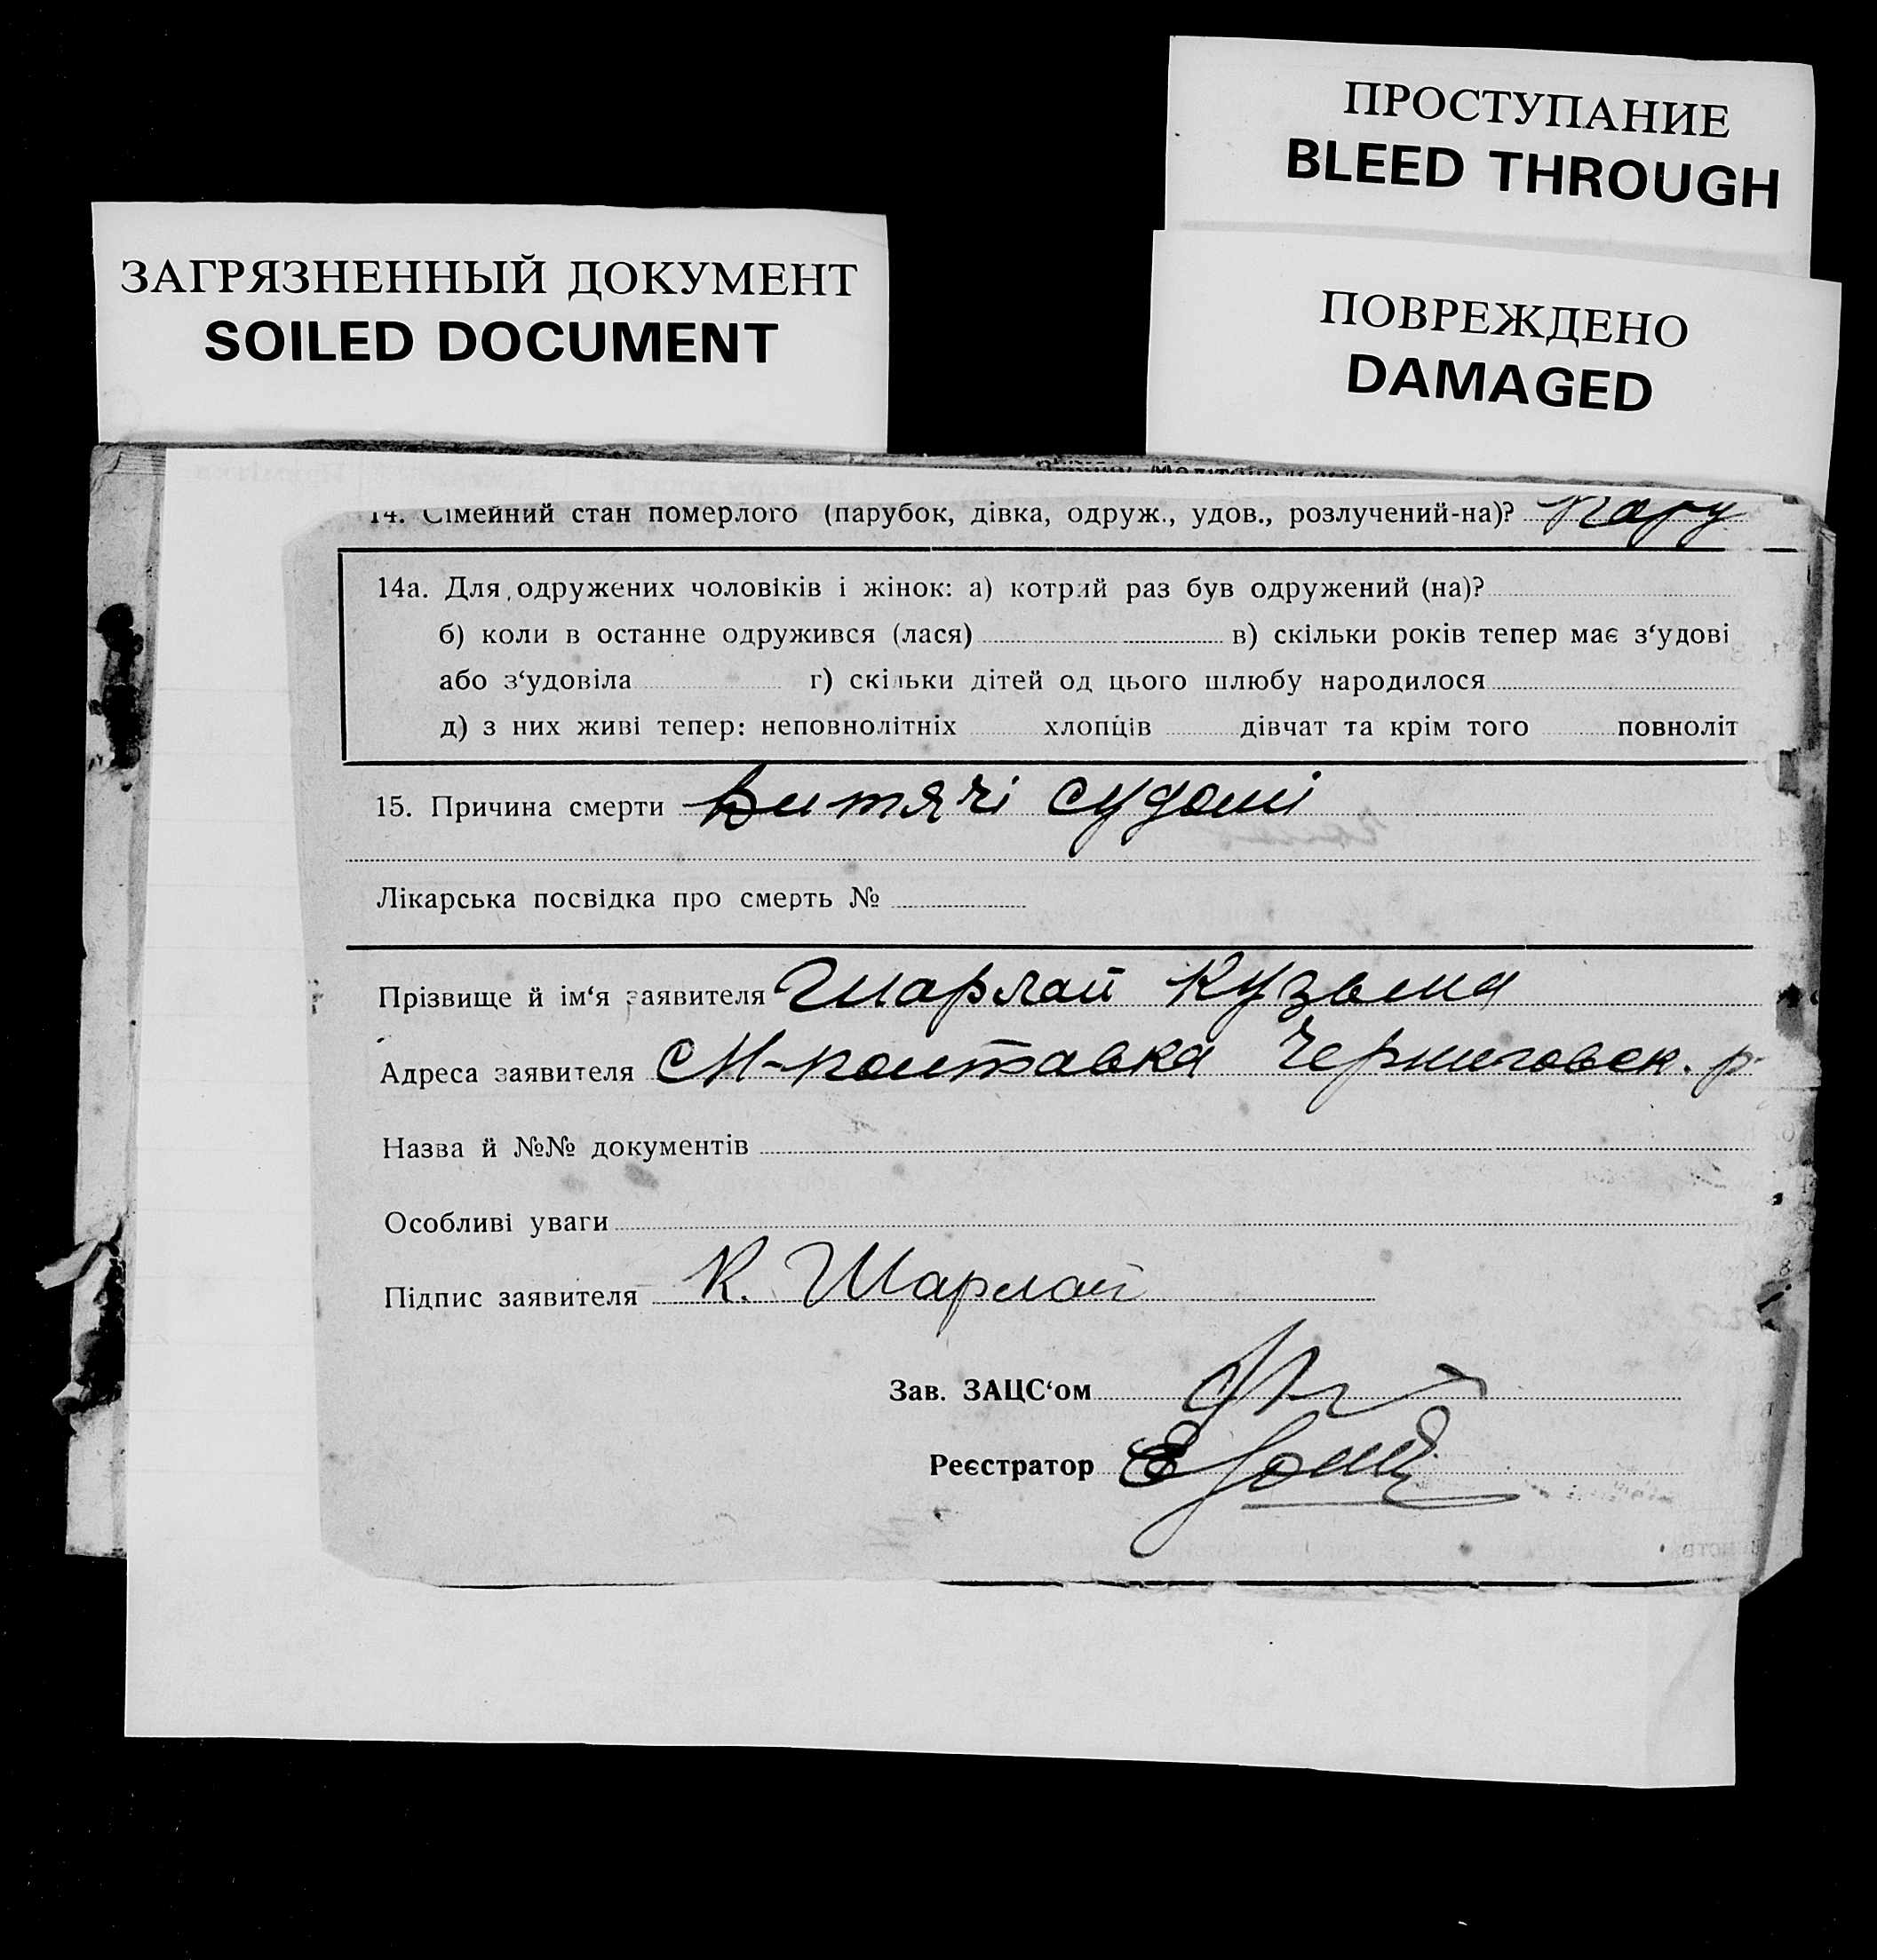 ПРОСТУПАНИЕ
BLEED THROUGH
ЗАГРЯЗНЕННЫЙ ДОКУМЕНТ
SOILED DOCUMENT
ПОВРЕЖДЕНО
DAMAGED
14. Сімейний стан померлого (парубок, дівка, одруж., удов., розлучений-на)? пару
14а. Для одружених чоловіків і жінок: а) котрий раз був одружений (на)?
б) коли в останне одружився (лася) в) скільки років тепер має з‘удові
або з‘удовіла г) скільки дітей од цього шлюбу народилося
д) з них живі тепер: неповнолітніх хлопців дівчат та крім того повноліт
15. Причина смерти Дитячі судоми
Лікарська посвідка про смерть №
Прізвище й ім‘я заявителя Шарлай Кузьма
Адреса заявителя с М-Полтавка Черниговск. р
Назва й №№ документів
Особливі уваги
Підпис заявителя К. Шарлай
Зав. ЗАЦС‘ом
Реєстратор